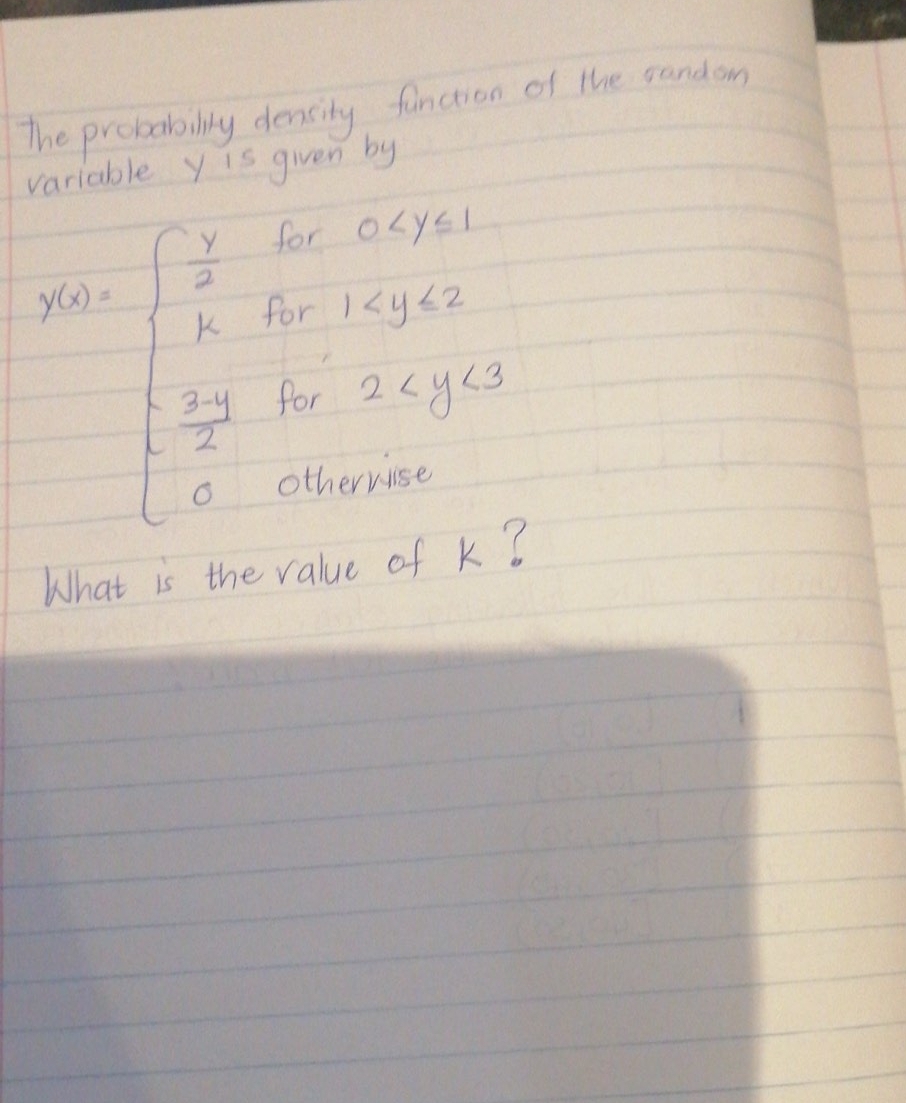 The probability density function of the random
variable Y is given by
y(x) =
Y/2 for 0<y≤1
K for 1<y≤2
3-y/2 for 2<y<3
0 otherwise
What is the value of K?